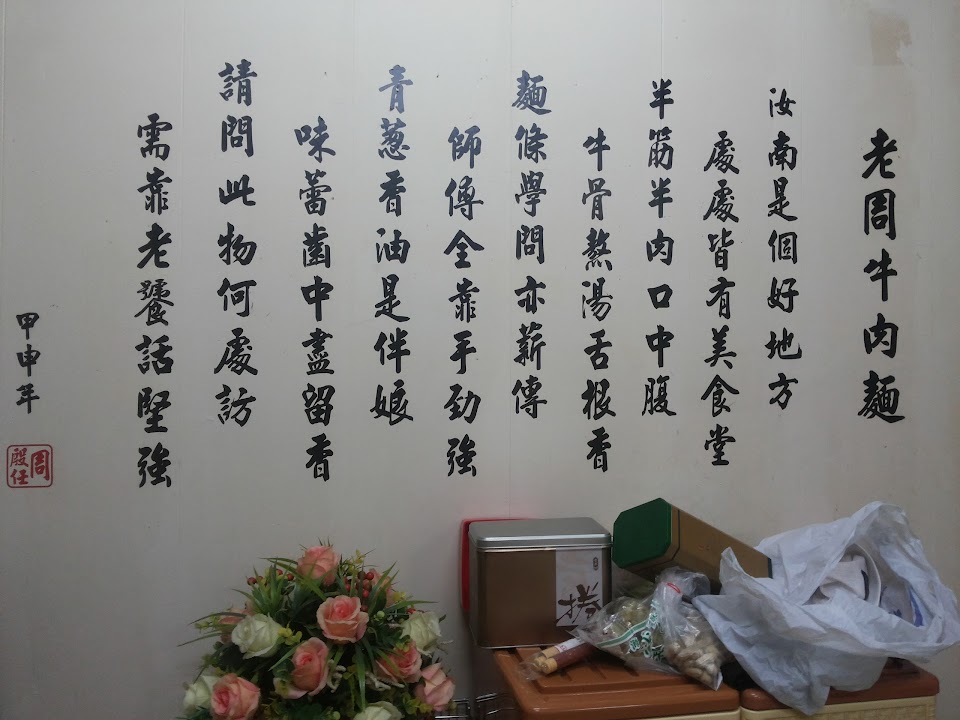 老周牛肉麵
汝南是個好地方
處處皆有美食堂
半筋半肉口中腹
牛骨熬湯舌根香
麵條學問亦薪傳
師傅全靠手勁強
青蔥香油是伴娘
味蕾齒中盡留香
請問此物何處訪
需靠老饕話堅強
甲申年
周
殿任
捲